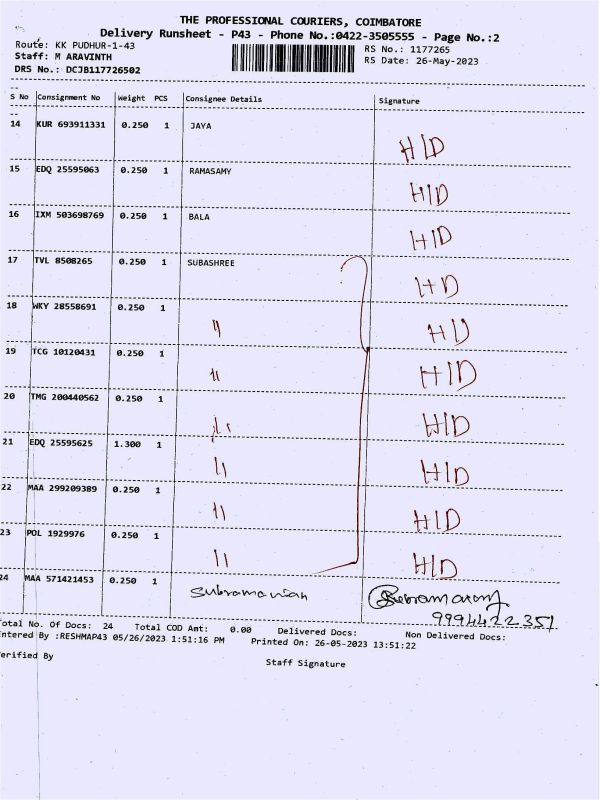 THE PROFESSIONAL COURIERS, COIMBATORE
Delivery Runsheet - P43 - Phone No.:0422-3505555 - Page No.:2
Route: KK PUDHUR-1-43 RS No.: 1177265
Staff: M ARAVINTH RS Date: 26-May-2023
DRS No.: DCJB117726502
S No Consignment No Weight PCS Consignee Details Signature
14 KUR 693911331 0.250 1 JAYA H/D
15 EDQ 25595063 0.250 1 RAMASAMY H/D
16 IXM 503698769 0.250 1 BALA H/D
17 TVL 8508265 0.250 1 SUBASHREE H/D
18 WKY 28558691 0.250 1 " H/D
19 TCG 10120431 0.250 1 " H/D
20 TMG 200440562 0.250 1 " H/D
21 EDQ 25595625 1.300 1 " H/D
22 MAA 299209389 0.250 1 " H/D
23 POL 1929976 0.250 1 " H/D
24 MAA 571421453 0.250 1 Subramanian
9994422351
Total No. Of Docs: 24 Total COD Amt: 0.00 Delivered Docs: Non Delivered Docs:
Entered By :RESHMAP43 05/26/2023 1:51:16 PM Printed On: 26-05-2023 13:51:22
Verified By Staff Signature